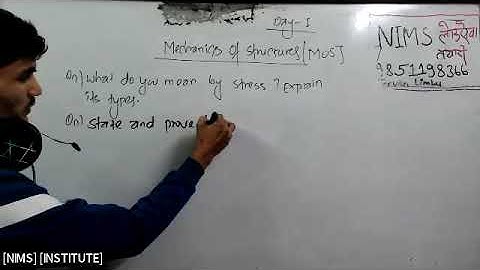 Day-1
Mechanics of structures [MOS]
Qn) What do you mean by stress? Explain
its types.
Qn) State and prove
NIMS
9851198366
[NIMS] [INSTITUTE]